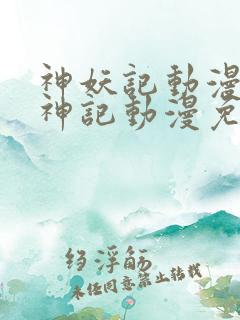 神妖記動漫
神記動漫免
绉浮觞
未经同意禁止转载